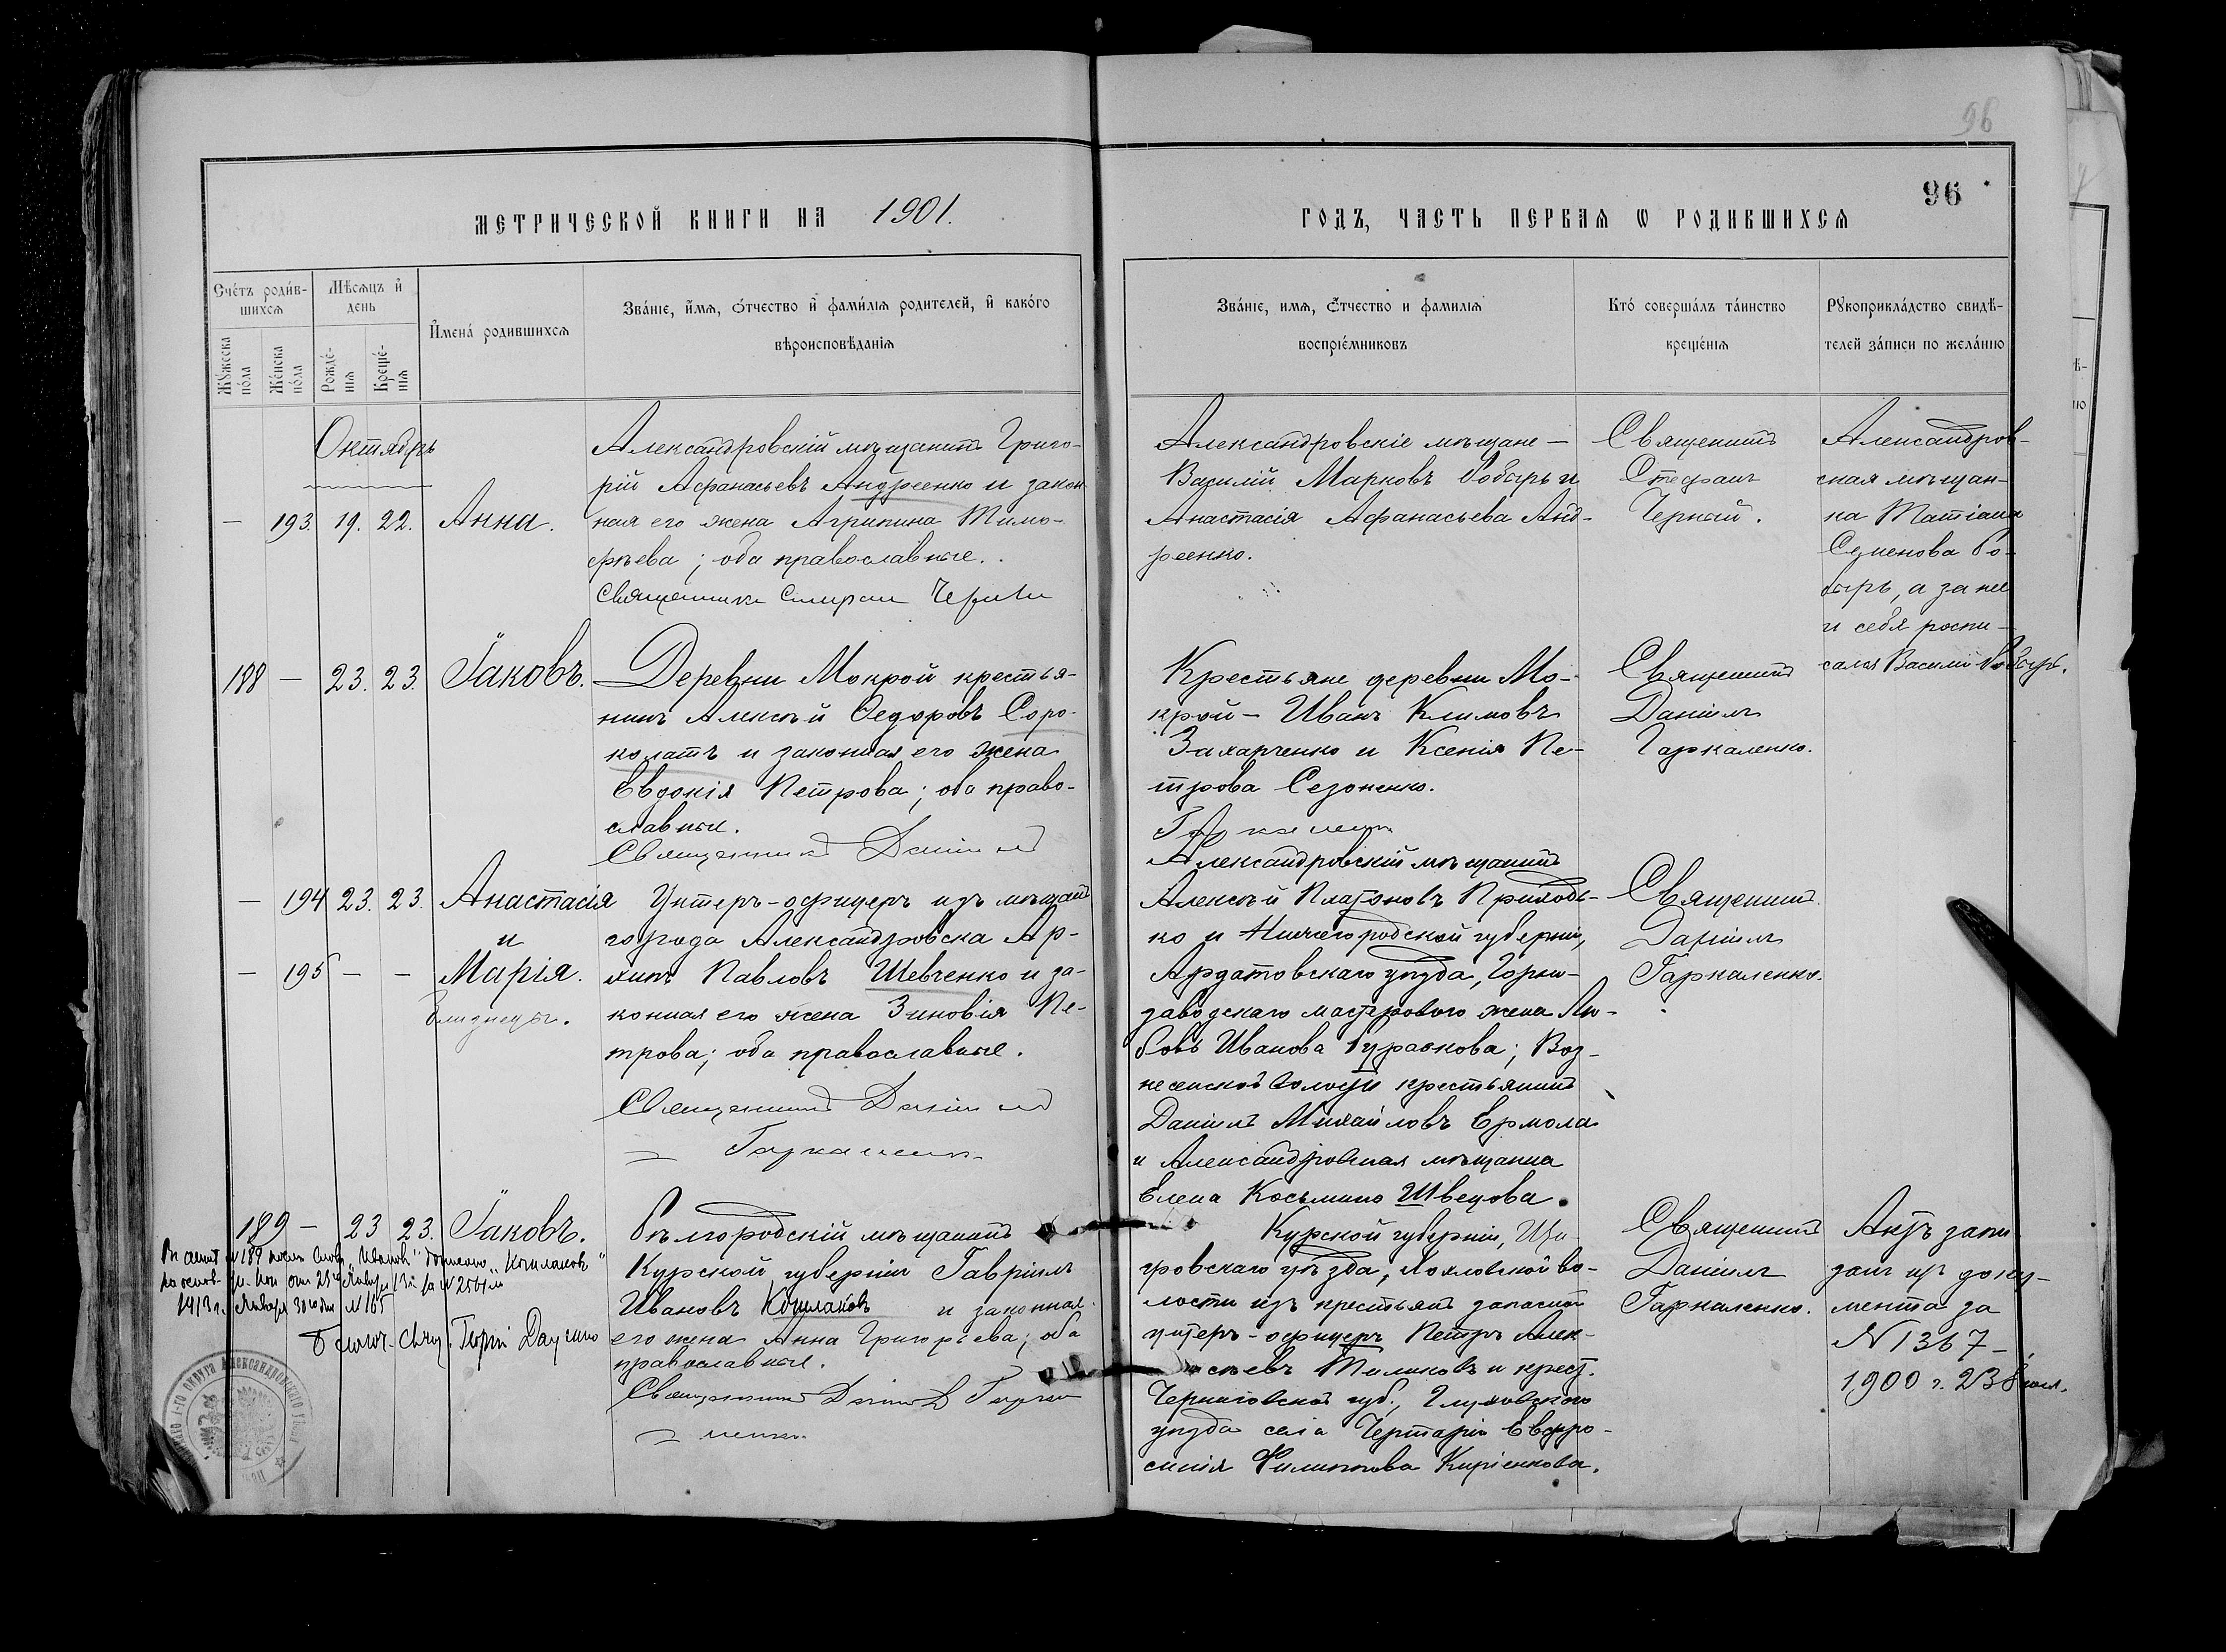 98
96
МЕТРИЧЕСКОЙ КНИГИ НА 1901.
ГОДЪ, ЧАСТЬ ПЕРВАЯ Ѡ РОДИВШИХСЯ
Счётъ родившихся
Мѣсяцъ и день
Мужеска пола
Женска пола
Рожденія
Крещенія
Имена родившихся
Званіе, имя, отчество и фамилія родителей, и какого
вѣроисповѣданія
Званіе, имя, отчество и фамилія
воспріемниковъ
Кто совершалъ таинство
крещенія
Рукоприкладство свидѣ-
телей записи по желанію
Октябрь
— 193. 19. 22. Анна.
Александровскій мѣщанинъ Григо-
рій Афанасьевъ Андреенко и закон
ная его жена Агрипина Тимо-
фѣева; оба православные.
Священникъ Стефанъ Черный
Александровскіе мѣщане —
Василій Марковъ Бобырь и
Анастасія Афанасьева Анд-
реенко.
Священникъ
Стефанъ
Черный.
Александров-
ская мѣщан-
ка Татіана
Семенова Бо-
бырь, а за нее
и себя роспи-
сался Василій Бобырь.
188 — 23. 23. Іаковъ.
Деревни Мокрой крестья-
нинъ Алексѣй Ѳедоровъ Соро-
колатъ и законная его жена
Евдокія Петрова; оба право-
славные.
Священникъ Даніилъ
Крестьяне деревни Мо-
крой — Иванъ Климовъ
Захарченко и Ксенія Пе-
трова Сезоненко.
Гаркаленко
Священникъ
Даніилъ
Гаркаленко.
— 194 23. 23. Анастасія
и
— 195 — — Марія.
близнецы.
Унтеръ-офицеръ изъ мѣщанъ
города Александровска Ар-
хипъ Павловъ Шевченко и за-
конная его жена Зиновія Пе-
трова; оба православные.
Священникъ Даніилъ
Гаркаленко
Александровскій мѣщанинъ
Алексѣй Платоновъ Приходь-
ко и Нижегородской губерніи,
Ардатовскаго уѣзда, Горно-
заводскаго мастероваго жена Лю-
бовь Иванова; Воз-
несенской волости крестьянинъ
Даніилъ Михайловъ Ермола
и Александровская мѣщанка
Елена Косьмина Швецова.
Священникъ
Даніилъ
Гаркаленко.
189 — 23 23. Іаковъ.
Бѣлгородскій мѣщанинъ
Курской губерніи Гавріилъ
Ивановъ Кошлаковъ и законная
его жена Анна Григорьева; оба
православные.
Священникъ Даніилъ Гарка
ленко
Курской губерніи, Щи-
гровскаго уѣзда, Хохловской во-
лости изъ крестьянъ запасной
унтеръ-офицеръ Петръ Алек-
сѣевъ и крест.
Черниговской губ., Глуховскаго
уѣзда села Евфро-
синія Филиппова Киріенкова.
Священникъ
Даніилъ
Гаркаленко.
Актъ запи
санъ изъ доку-
мента за
N 1367 —
1900 г. 23
Въ статьѣ № 189 послѣ слова „Ивановъ" дописано „Кошлаковъ"
1913 г. Января 30 го дня № 165
Благоч. Свящ. Георгій